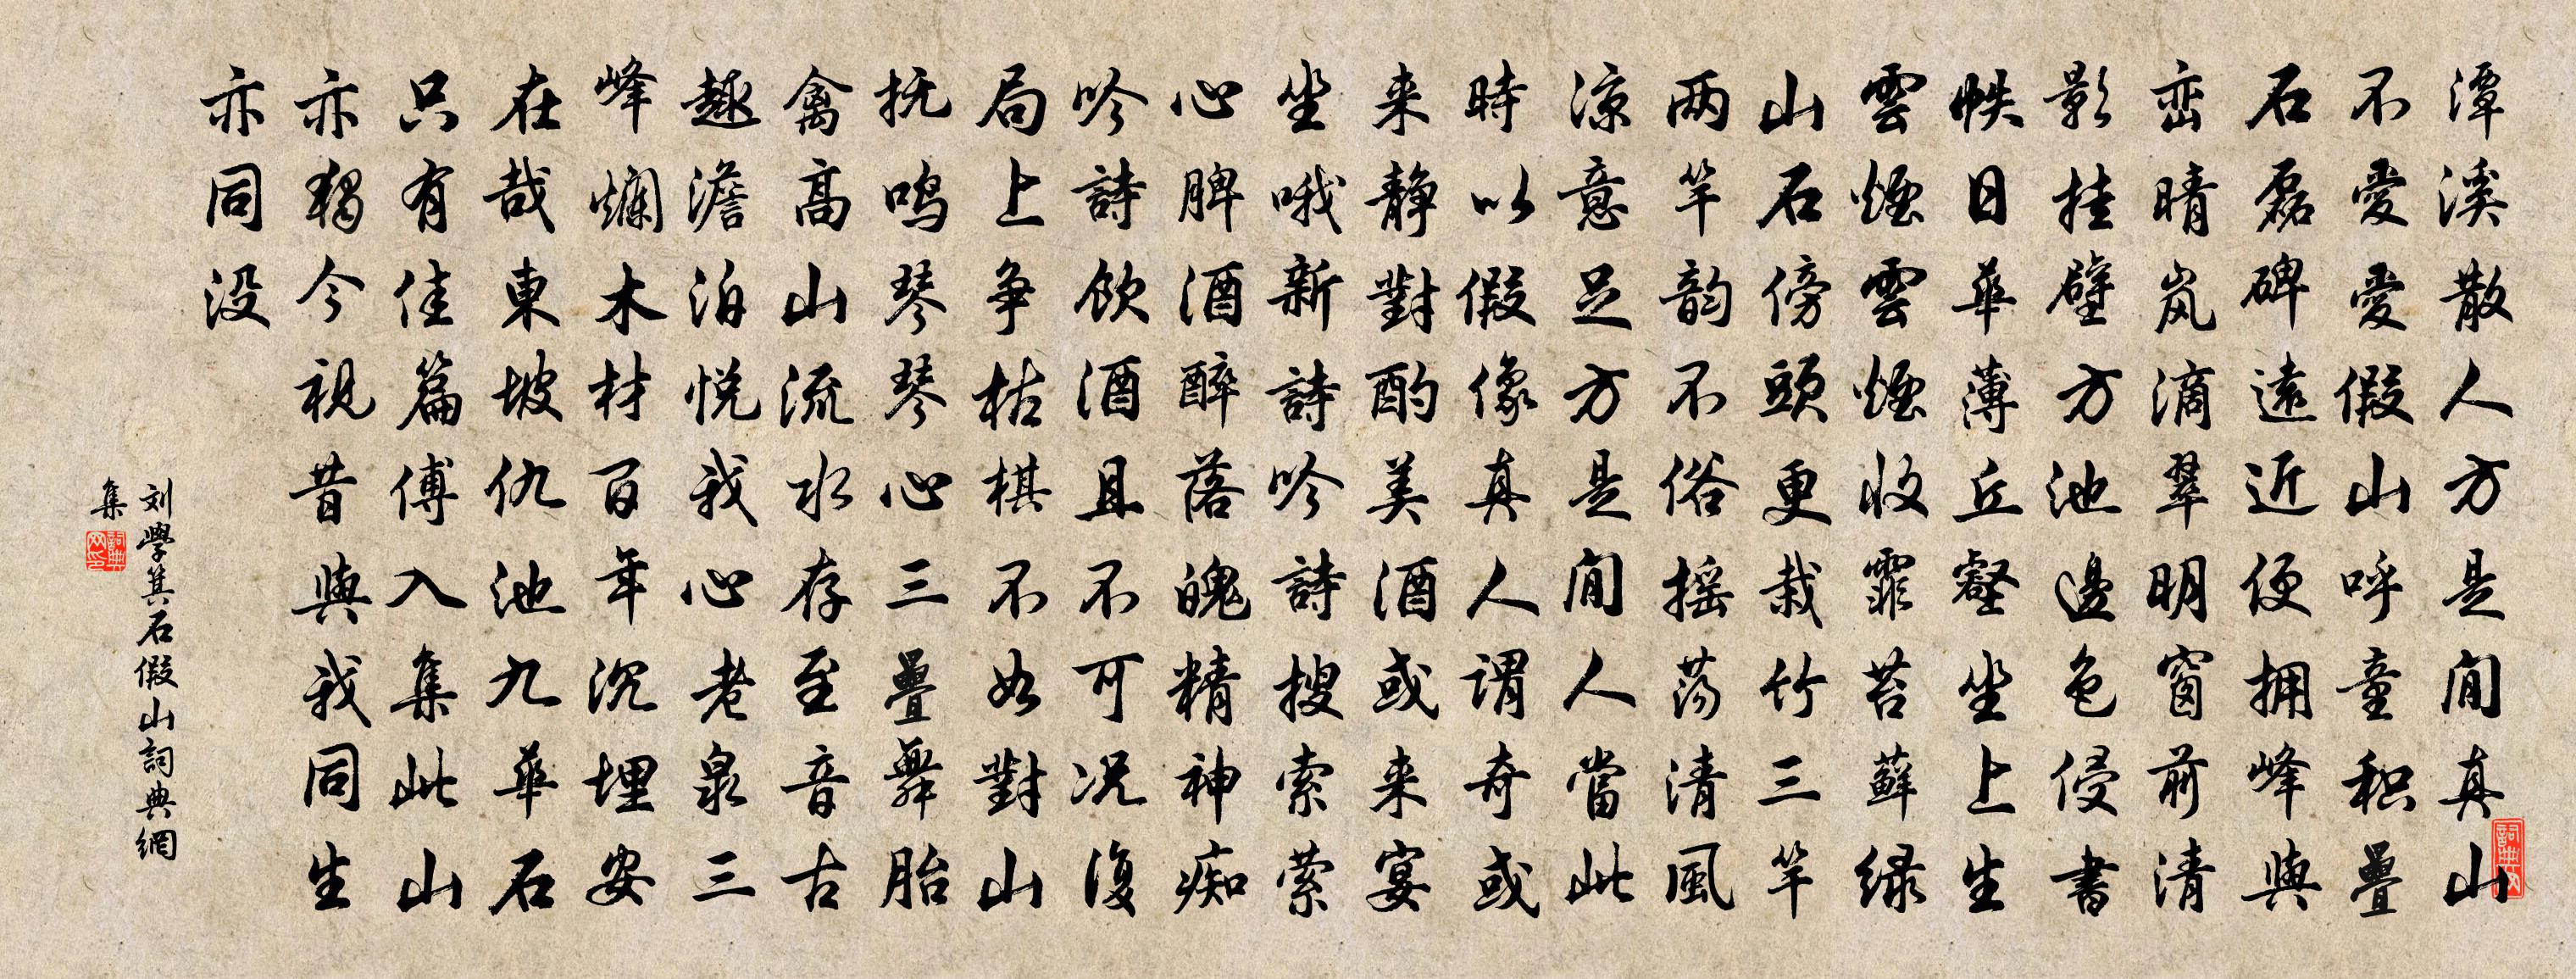 潭溪散人方是閒真山
不愛愛假山呼童积疊
石磊碑遠近便拥峰與
巒晴岚滴翠明窗前清
影挂壁方池邊色侵書
帙日華薄丘壑坐上生
雲煙雲煙收霏苔蘚緑
山石傍頭更栽竹三竿
两竿韵不俗摇荡清風
凉意足方是閒人當此
時以假像真人謂奇或
来静對酌美酒或来宴
坐哦新詩吟詩搜索萦
心脾酒醉落魄精神痴
吟詩飲酒且不可况復
局上争枯棋不如對山
抚鸣琴琴心三疊舞胎
禽高山流水存至音古
趣澹泊悦我心老泉三
峰爛木材百年沉埋安
在哉東坡仇池九華石
只有佳篇傅入集此山
亦獨今視昔與我同生
亦同没
刘學箕石假山詞典網
集
詞典
詞典